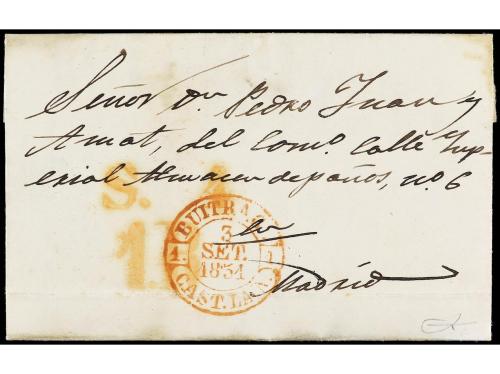 Señor Dn Pedro Juan y
Amat, del Como. Calle Imp-
erial Almacen de paños, no. 6
S. 4
1
BUITRAGO
1. 3 1.
SET.
1854
CAST. LA N.
en
Madrid